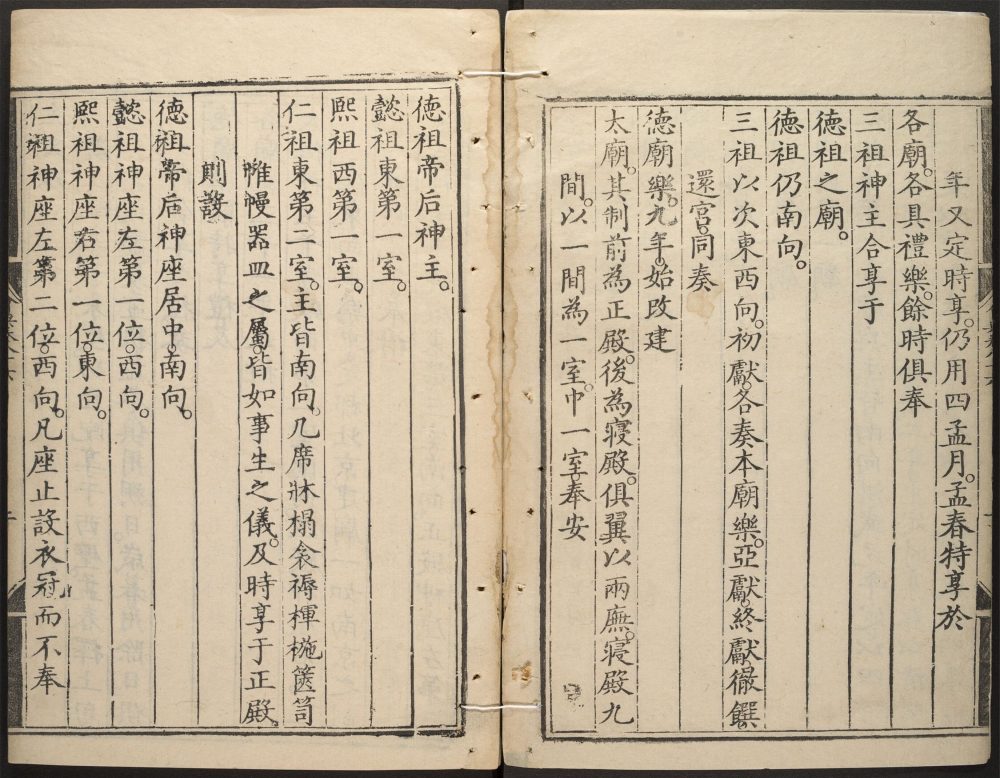 年又定時享。仍用四孟月。孟春特享於
各廟。各具禮樂。餘時俱奉
三祖神主合享于
德祖之廟。
德祖仍南向。
三祖以次東西向。初獻。各奏本廟樂。亞獻。終獻。徹饌。
還宮。同奏
德廟樂。九年。始改建
太廟。其制前為正殿。後為寢殿。俱翼以兩廡。寢殿九
間。以一間為一室。中一室。奉安
德祖帝后神主。
懿祖東第一室。
熙祖西第一室。
仁祖東第二室。主皆南向。几席牀榻衾褥楎椸篋笥
帷幔器皿之屬。皆如事生之儀。及時享于正殿
則設
德祖帝后神座居中南向。
懿祖神座左第一位。西向。
熙祖神座右第一位。東向。
仁祖神座左第二位。西向。凡座止設衣冠而不奉